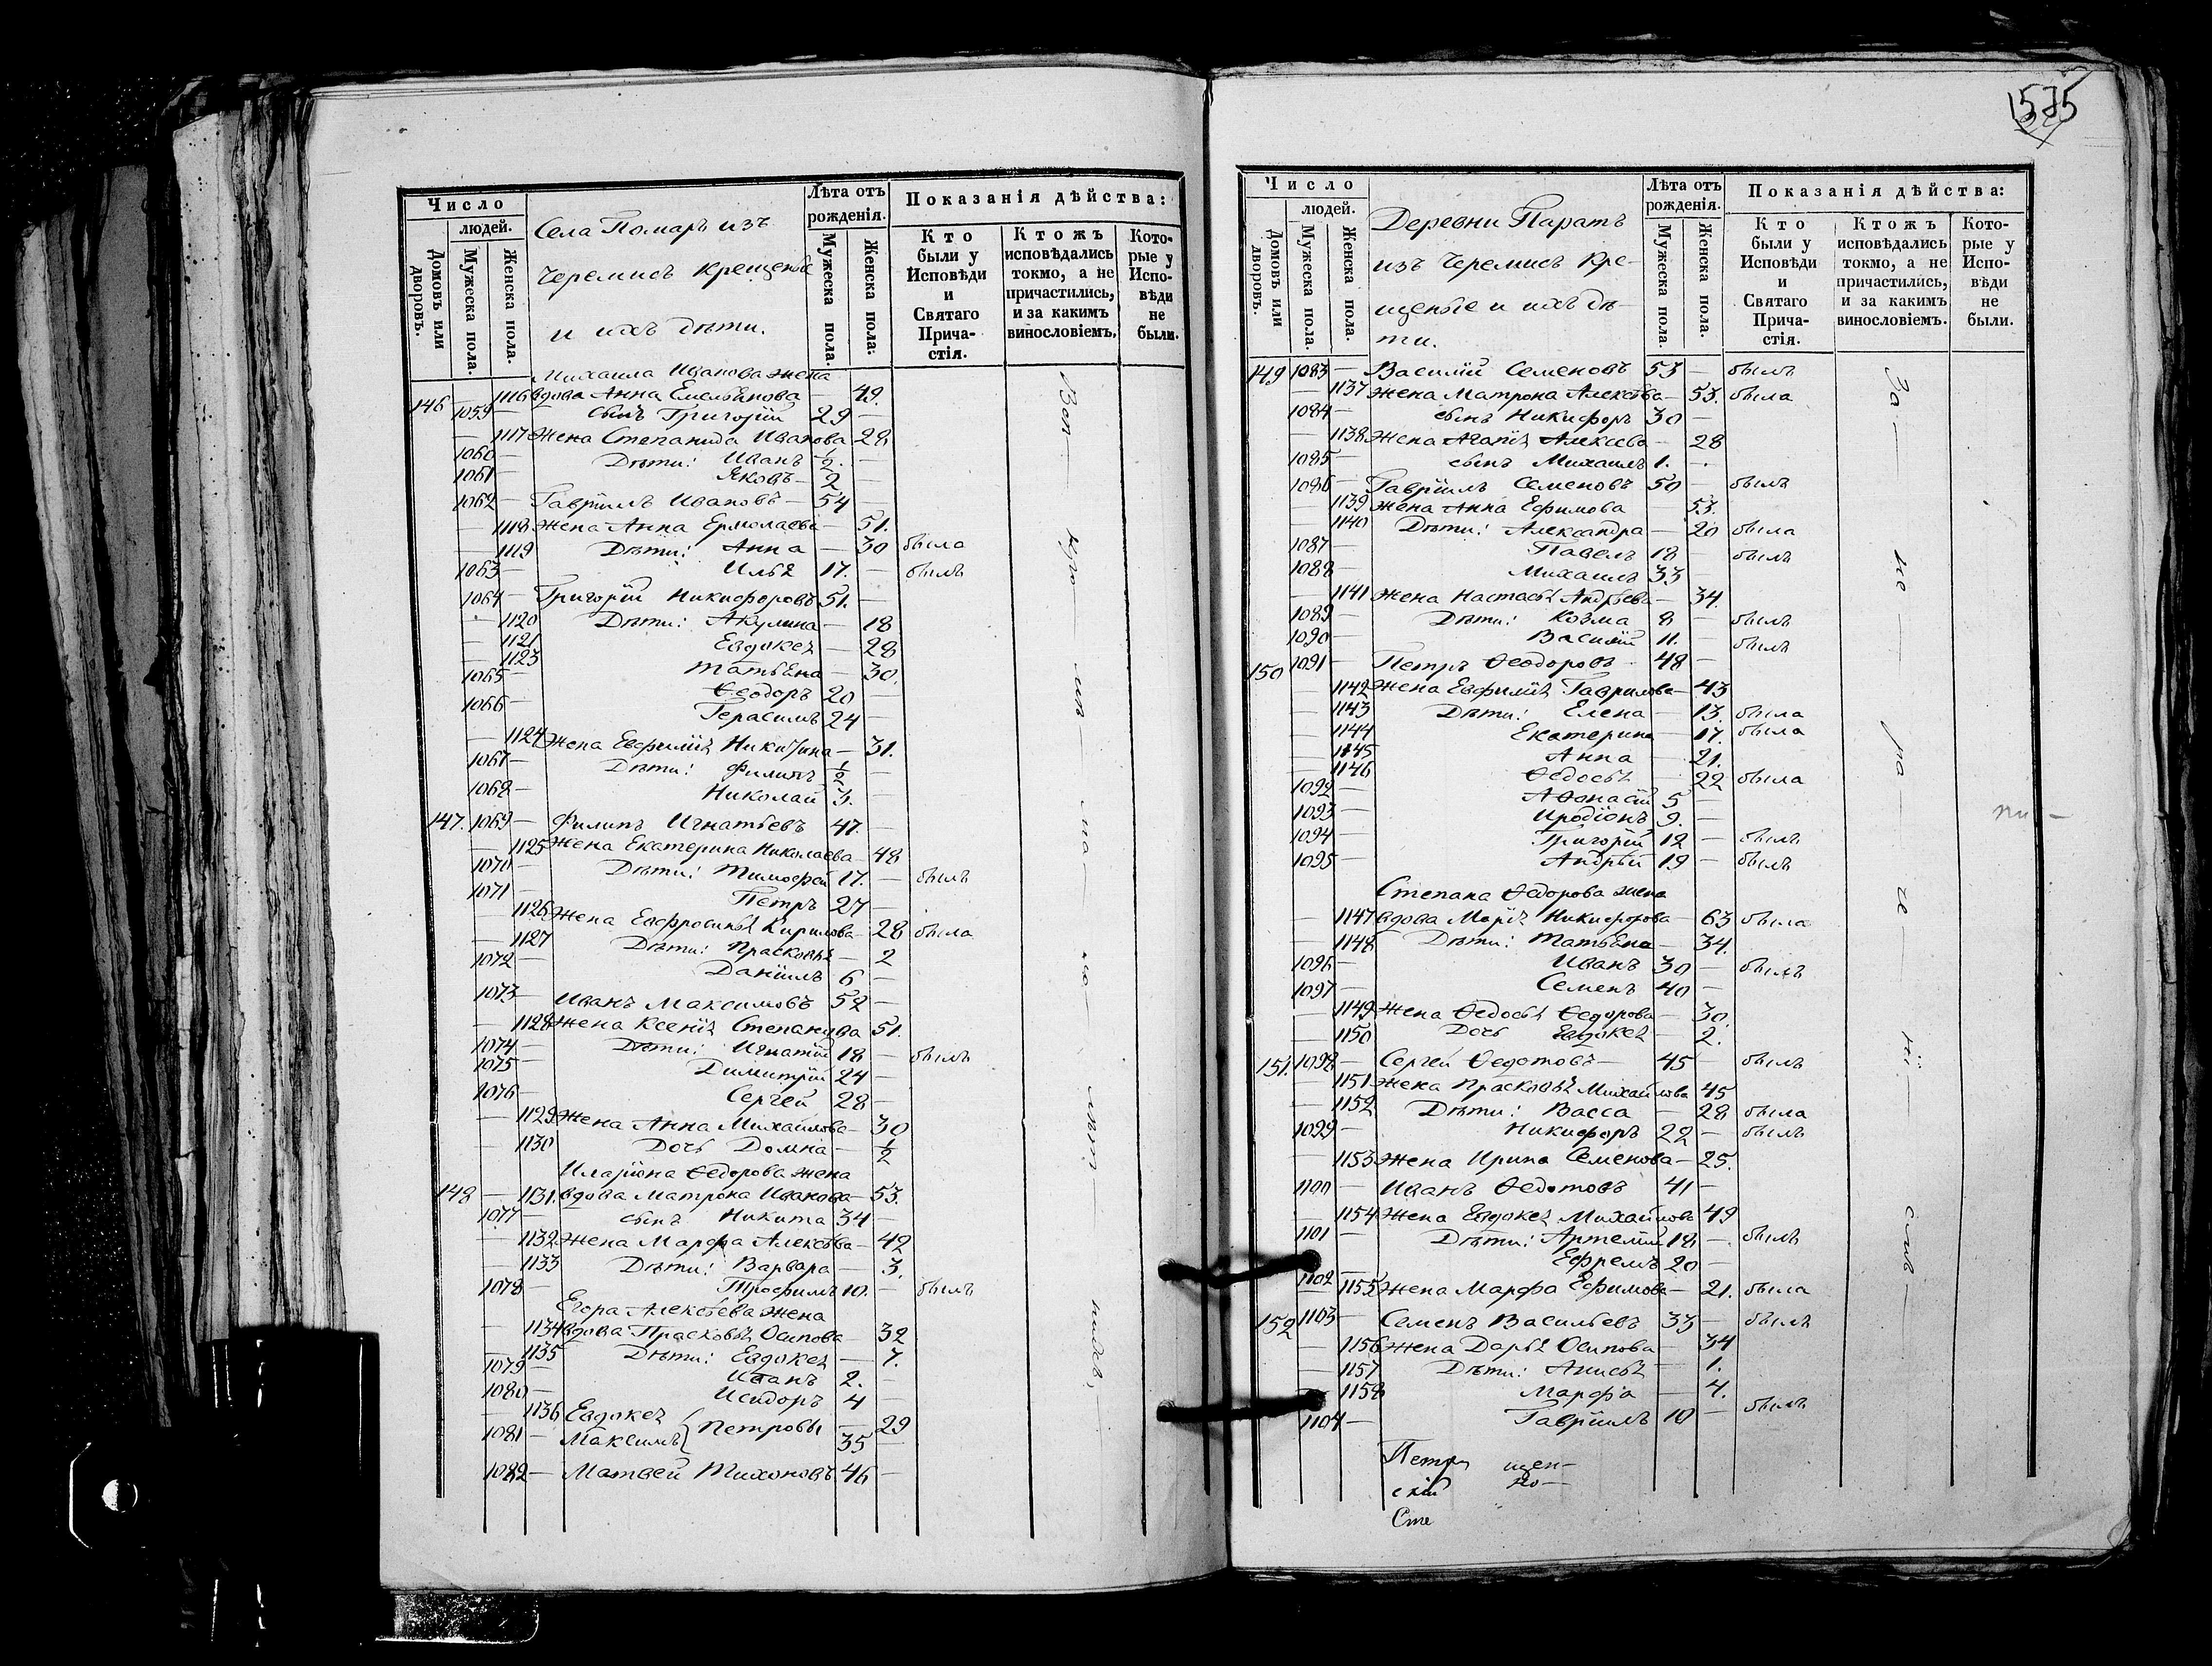 Число
людей.
Домовъ или дворовъ.
Мужеска пола.
Женска пола.
Села Помаръ изъ
Черемисъ крещеные
и ихъ дѣти.
Лѣта отъ рожденія.
Мужеска пола.
Женска пола.
Показанія дѣйства:
Кто были у Исповѣди и Святаго Причастія.
Ктожъ исповѣдались токмо, а не причастились, и за какимъ винословіемъ.
Которые у Исповѣди не были.
Михаила Иванова жена
146 — 1116 вдова Анна Емельянова — 49.
1059 — сынъ Григорій 29 —
— 1117 Жена Степанида Иванова 28
1060 — Дѣти: Иванъ 1/2. —
1061 — Яковъ — 2 —
1062 — Гавріилъ Ивановъ — 54
— 1118 Жена Анна Ермолаева — 51.
— 1119 Дѣти: Анна — 30 была
1063 — Илья 17. — былъ
1064 — Григорій Никифоровъ 51. —
— 1120 Дѣти: Акулина — 18
— 1121 Евдокея — 28
— 1123 Татьяна — 30.
1065 — Ѳеодоръ 20 —
1066 — Герасимъ 24 —
— 1124 Жена Евфимія Никитина — 31.
1067 — Дѣти: Филипъ 1/2 —
1068 — Николай 3. —
147. 1069 — Филипъ Игнатьевъ 47. —
— 1125 Жена Екатерина Николаева — 48
1070 — Дѣти: Тимофей 17. — былъ
1071 — Петръ 27 —
— 1126 Жена Евфросинья Кирилова — 28 была
— 1127 Дѣти: Прасковья — 2
1072 — Даніилъ 6 —
1073 — Иванъ Максимовъ 52 —
— 1128 Жена Ксенія Степанова 51.
1074 — Дѣти: Игнатій 18 — былъ
1075 — Димитрій 24 —
1076 — Сергей 28 —
— 1129 Жена Анна Михайлова — 30
— 1130 Дочь Домна — 1/2
Иларіона Ѳедорова жена
148 — 1131. вдова Матрона Иванова — 53.
1077 — сынъ Никита 34 —
— 1132 Жена Марфа Алексѣева — 42
— 1133 Дѣти: Варвара — 3.
1078 — Трофимъ 10. — былъ
Егора Алексѣева жена
— 1134 вдова Прасковья Осипова — 32
— 1135 Дѣти: Евдокея — 7.
1079 — Иванъ 2. —
1080 — Исидоръ 4 —
— 1136 Евдокея } Петровы — 29
1081 — Максимъ 35 —
1082 — Матвей Тихоновъ 46 —
575
Число
людей.
Домовъ или дворовъ.
Мужеска пола.
Женска пола.
Деревни Паратъ
изъ Черемисъ кре-
щеные и ихъ дѣ-
ти.
Лѣта отъ рожденія.
Мужеска пола.
Женска пола.
Показанія дѣйства:
Кто были у Исповѣди и Святаго Причастія.
Ктожъ исповѣдались токмо, а не причастились, и за какимъ винословіемъ.
Которые у Исповѣди не были.
149 1083 — Василій Семеновъ 53 — былъ
— 1137 Жена Матрона Алексѣева — 53. была
1084 — сынъ Никифоръ 30 —
— 1138 Жена Агапія Алексеева — 28
1085 — сынъ Михаилъ 1. —
1086 — Гавріилъ Семеновъ 50 — былъ
— 1139 Жена Анна Ефимова 53.
— 1140 Дѣти: Александра — 20 была
1087 — Павелъ 18 — былъ
1088 — Михаилъ 33 —
— 1141 Жена Настасья Андрѣева — 34.
1089 — Дѣти: Козма 8 — былъ
1090 — Василій 11. — былъ
150 1091 — Петръ Ѳеодоровъ 48 —
— 1142 Жена Евфимія Гаврилова — 43
— 1143 Дѣти: Елена — 13. была
— 1144 Екатерина — 17. была
— 1145 Анна — 21.
— 1146 Ѳедосья 22 была
1092 — Аѳонасій 5 —
1093 — Иродіонъ 9. —
1094 — Григорій 12 — былъ
1095 — Андрѣй 19 — былъ
Степана Ѳедорова жена
— 1147 вдова Марія Никифорова — 63 была
— 1148 Дѣти: Татьяна — 34.
1096 — Иванъ 30 — былъ
1097 — Семенъ 40 —
— 1149 Жена Ѳедосья Ѳедорова — 30.
— 1150 Дочь Евдокея — 2.
151. 1098 — Сергей Ѳедотовъ — 45 — былъ
— 1151 Жена Прасковья Михайлова 45
— 1152 Дѣти: Васса — 28 была
1099 — Никифоръ 22 — былъ
— 1153 Жена Ирина Семенова — 25.
1100 — Иванъ Ѳедотовъ 41 —
— 1154 Жена Евдокея Михайлова 49
1101 — Дѣти: Артемій 18 — былъ
Ефремъ 20 —
1102 1155 Жена Марфа Ефимова — 21. была
152 1103 — Семенъ Васильевъ 33 — былъ
— 1156 Жена Дарья Осипова — 34
— 1157 Дѣти: Анисья — 1.
— 1158 Марфа — 4.
1104 — Гавріилъ 10 — былъ
За — не — ра — че — ні — емъ
Петръ щен-
скій но —
Сте